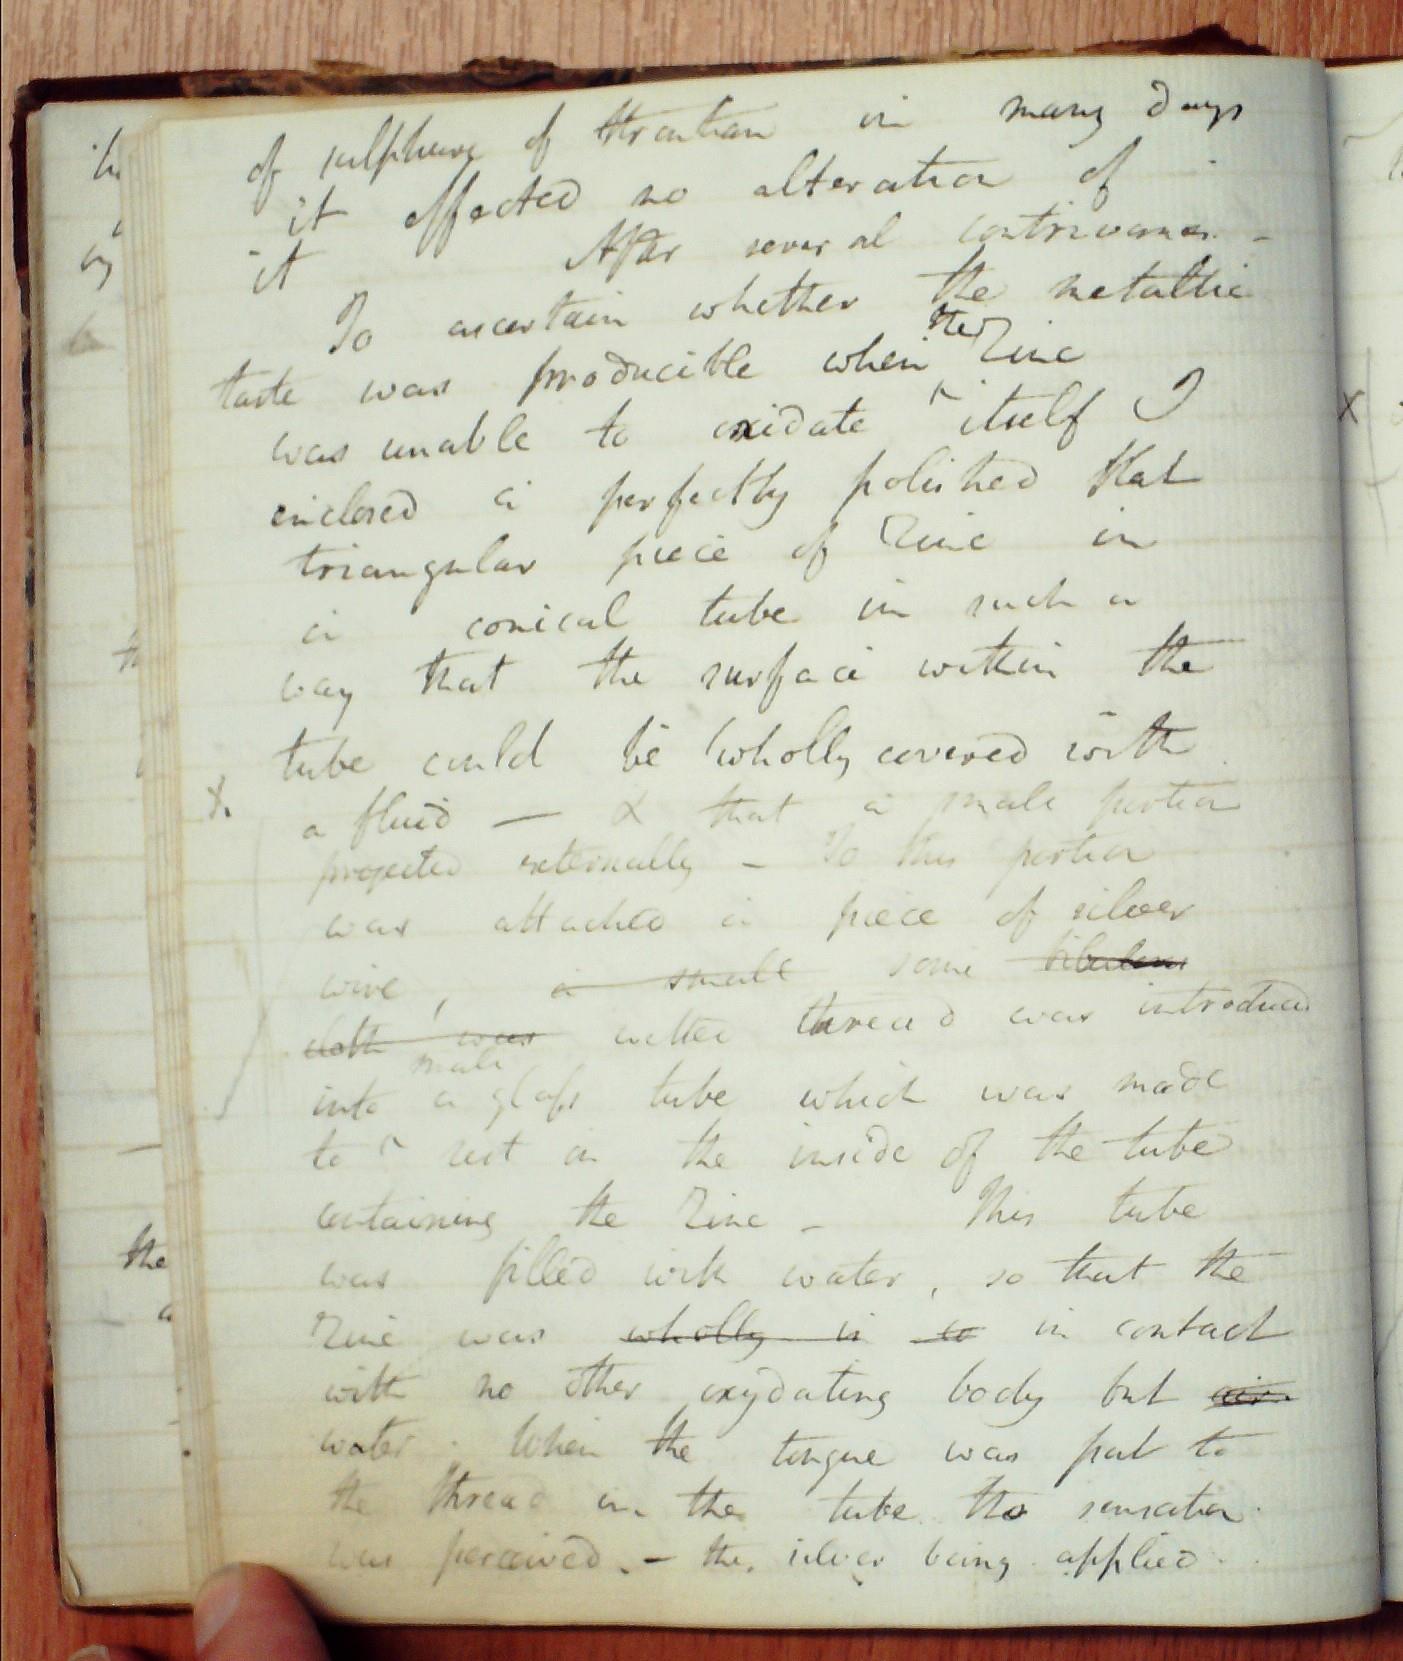 of sulphure of Strontian in many days
it effected no alteration of
it After several contrivances. -
To ascertain whether the metallic
taste was producible when the Zinc
was unable to oxidate itself I
enclosed a perfectly polished flat
triangular piece of Zinc in
a conical tube in such a
way that the surface within the
tube could be wholly covered with
X. a fluid — & that a small portion
projected externally – To this portion
was attached a piece of silver
wire, a small some bibulous
cloth was wetted thread was introduced
into a small glass tube which was made
to rest in the inside of the tube
containing the Zinc – This tube
was filled with water, so that the
Zinc was wholly in to in contact
with no other oxydating body but air
water. When the tongue was put to
the thread in the tube the sensation
was perceived. – the silver being applied.
the
X